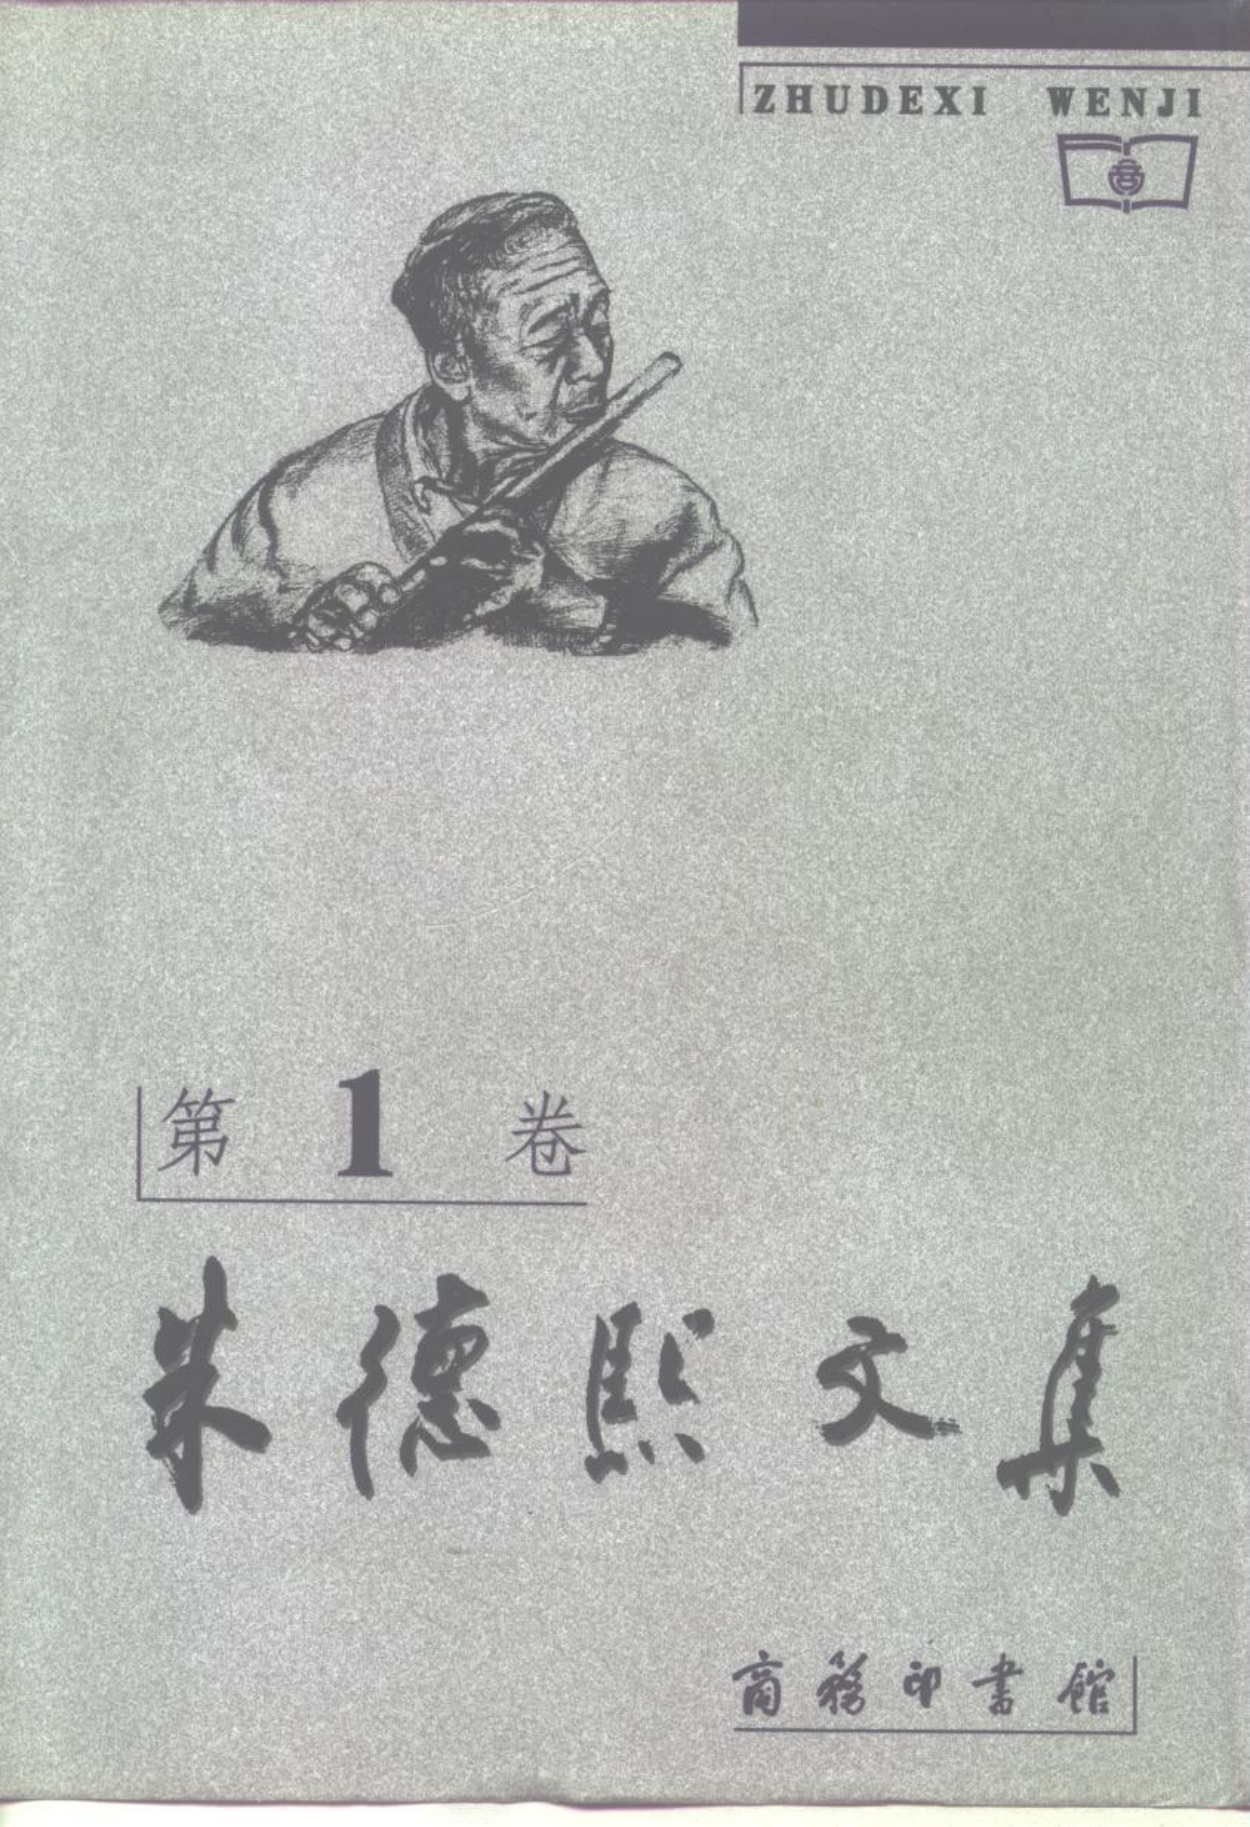 ZHUDEXI WENJI
商
第1卷
朱德熙文集
商務印書館